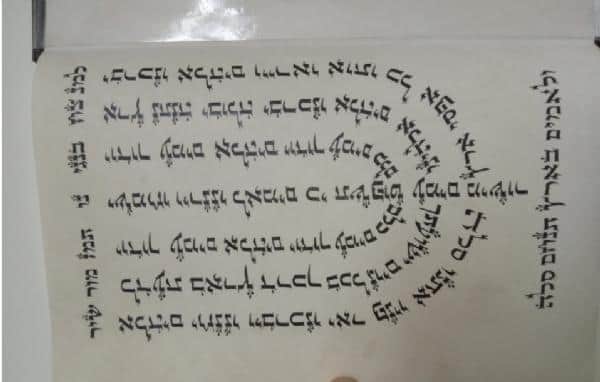 למנצח בנגינת מזמור שיר
אלהים יחננו ויברכנו יאר פניו אתנו סלה
לדעת בארץ דרכך בכל גוים ישועתך
יודוך עמים אלהים יודוך עמים כלם
ישמחו וירננו לאמים כי תשפט עמים מישור
ולאמים בארץ תנחם סלה
יודוך עמים אלהים יודוך עמים כלם
ארץ נתנה יבולה יברכנו אלהים אלהינו
יברכנו אלהים וייראו אותו כל אפסי ארץ